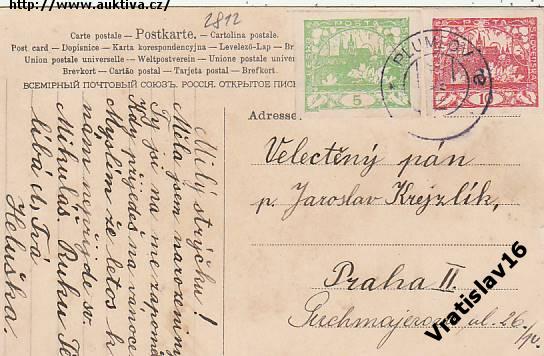 http://www.auktiva.cz/
2812
Carte postale — Postkarte. — Cartolina postale
Post card — Dopisnice — Karta korespondencyjna — Levelező-Lap — Br
Union postale universelle — Weltpostverein — Unione postale universa
Brevkort — Cartão postal — Tarjeta postal — Brefkort.
ВСЕМІРНЫЙ ПОЧТОВЫЙ СОЮЗЪ. РОССІЯ. ОТКРЫТОЕ ПИС
POŠTA
5
POŠTA
10
PLUMLOV
Adresse
Velectěný pán
p. Jaroslav Krejzlík,
Praha II.
Puchmajerova ul. 26.
Milý strýčku!
Měla jsem narozeniny
Ty jsi na mě zapomě
Kdy přijedeš na vánoce
Myslím že letos k
nám nepřijde sv.
Mikuláš. Ruku Ti
líbá tvá
Heluška.
Vratislav16